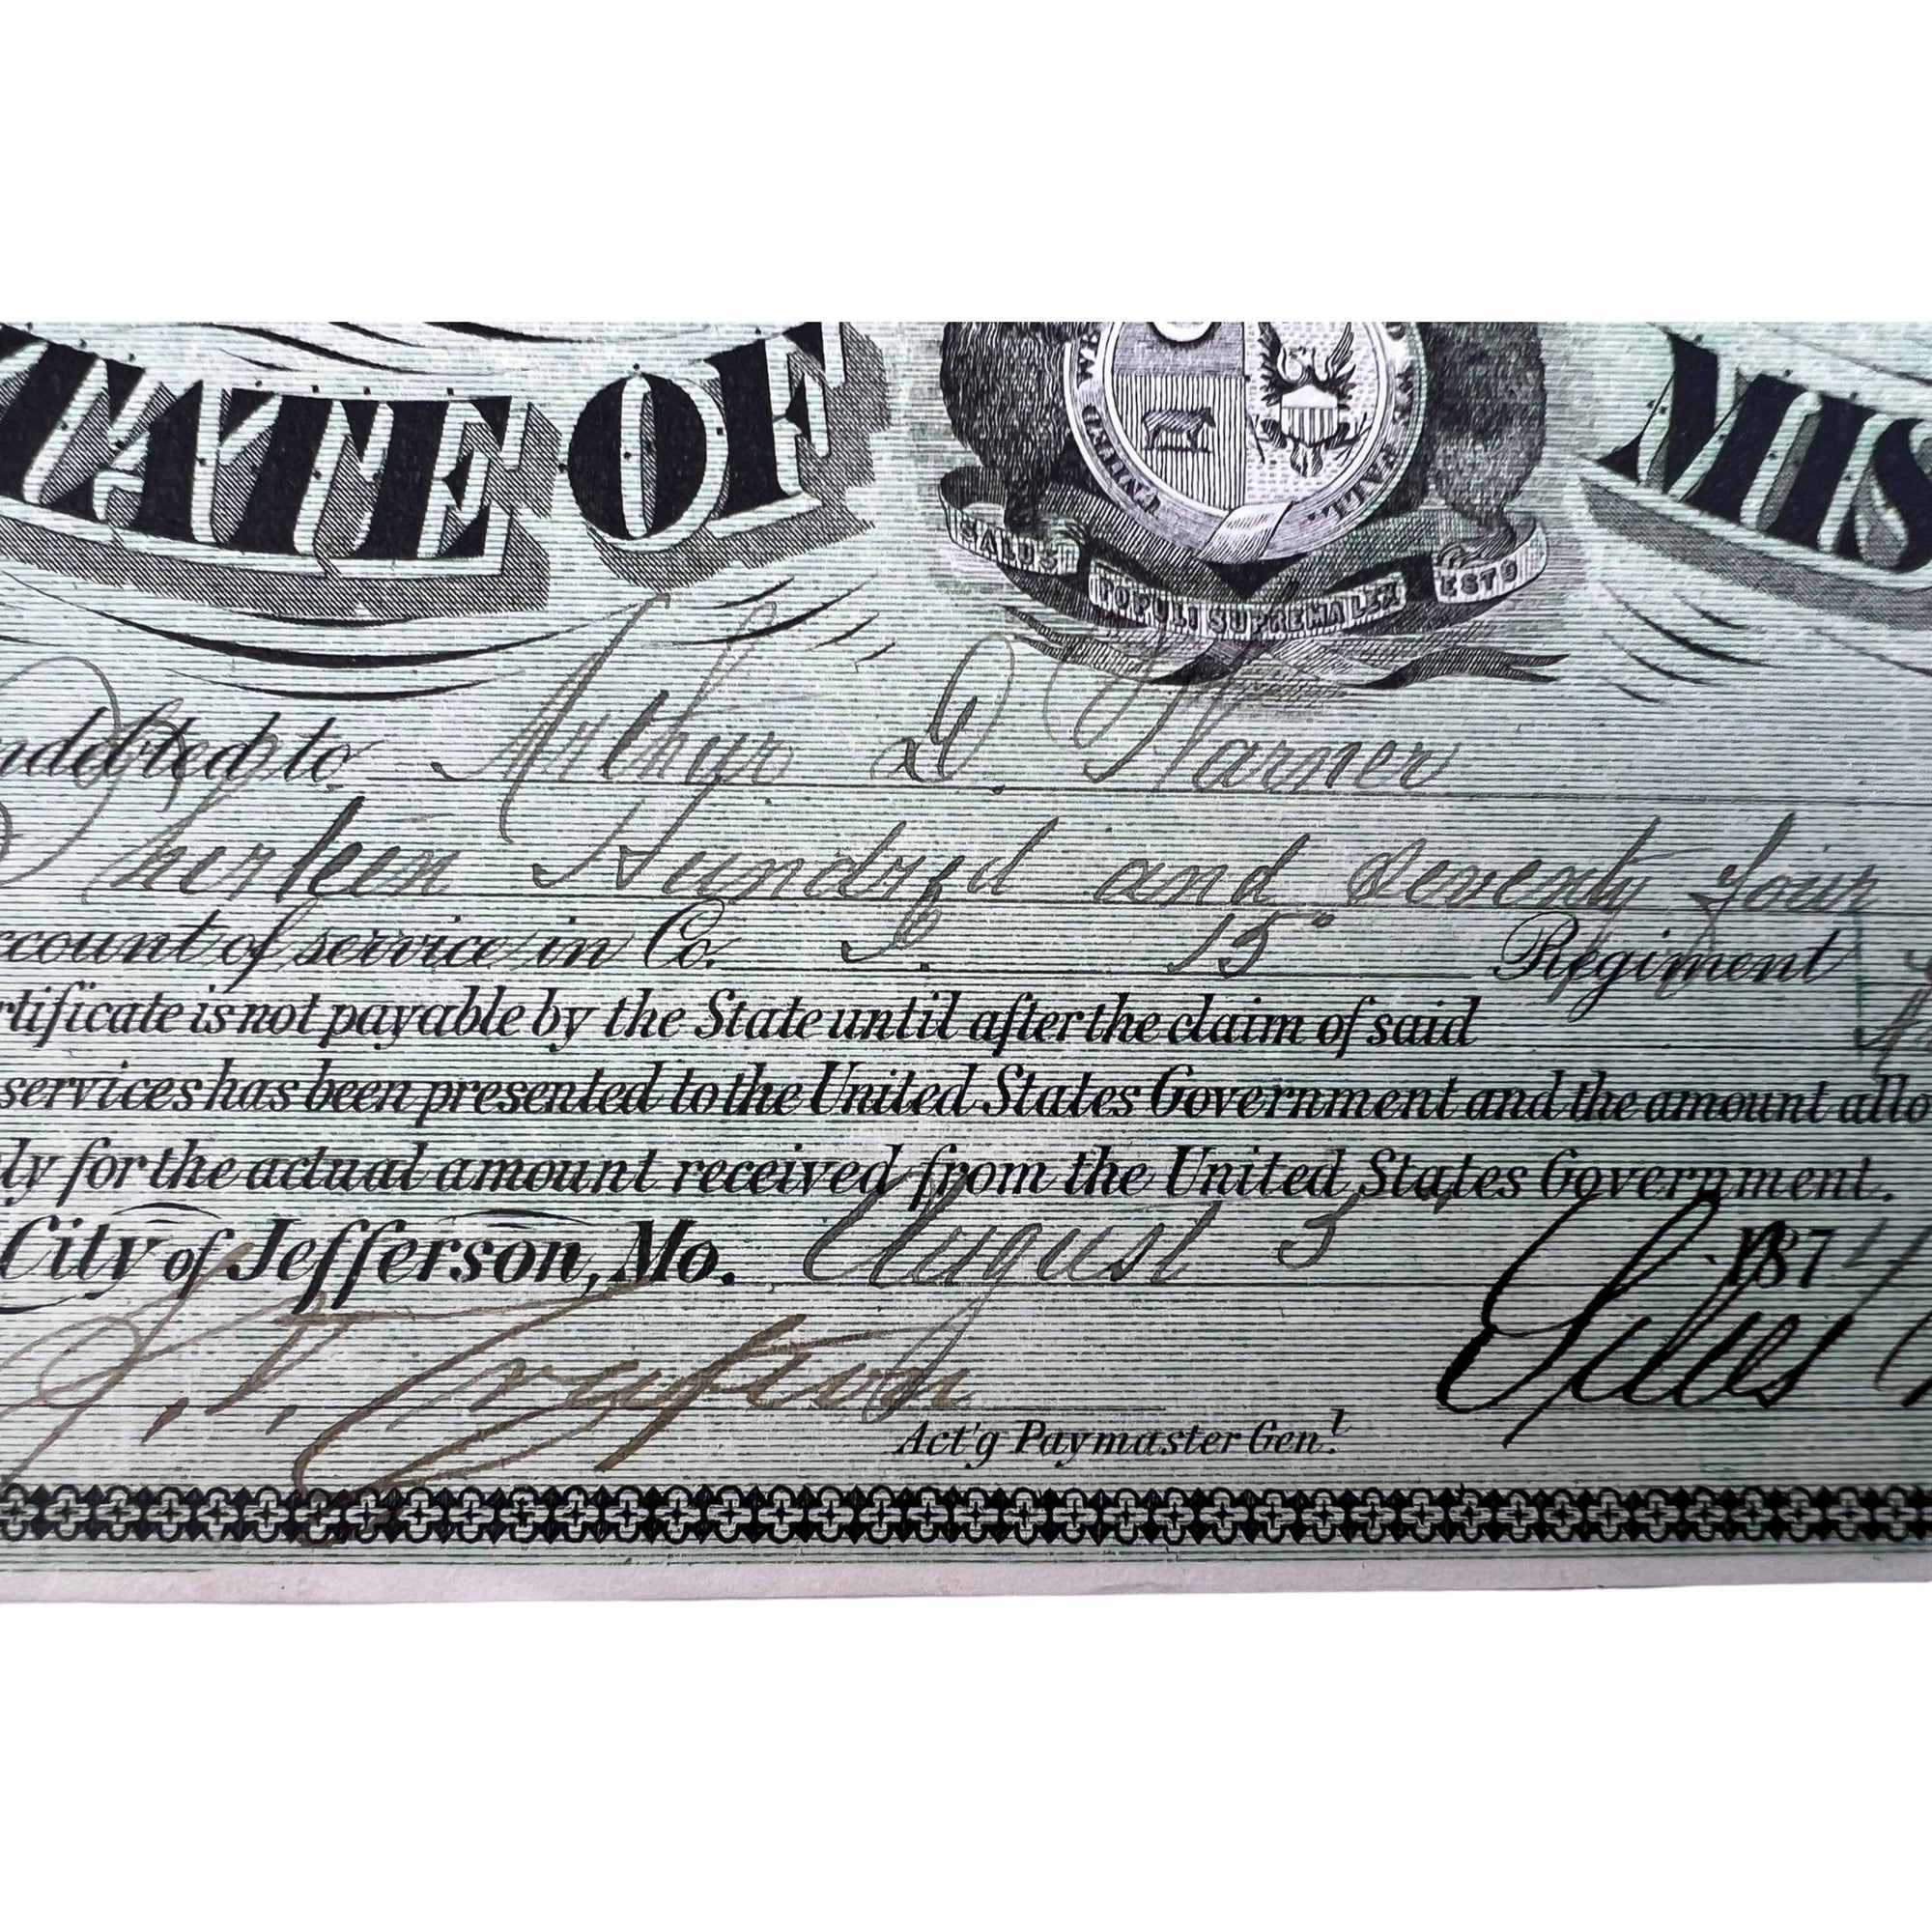 STATE OF MIS
UNITED WE STAND
SALUS POPULI SUPREMA LEX ESTO
indebted to Arthur D. Warner
Thirteen Hundred and Seventy Four
account of service in Co. 15" Regiment
rtificate is not payable by the State until after the claim of said
services has been presented to the United States Government and the amount allo
ly for the actual amount received from the United States Government.
City of Jefferson, Mo. August 3 1874
Act'g Paymaster Genl.